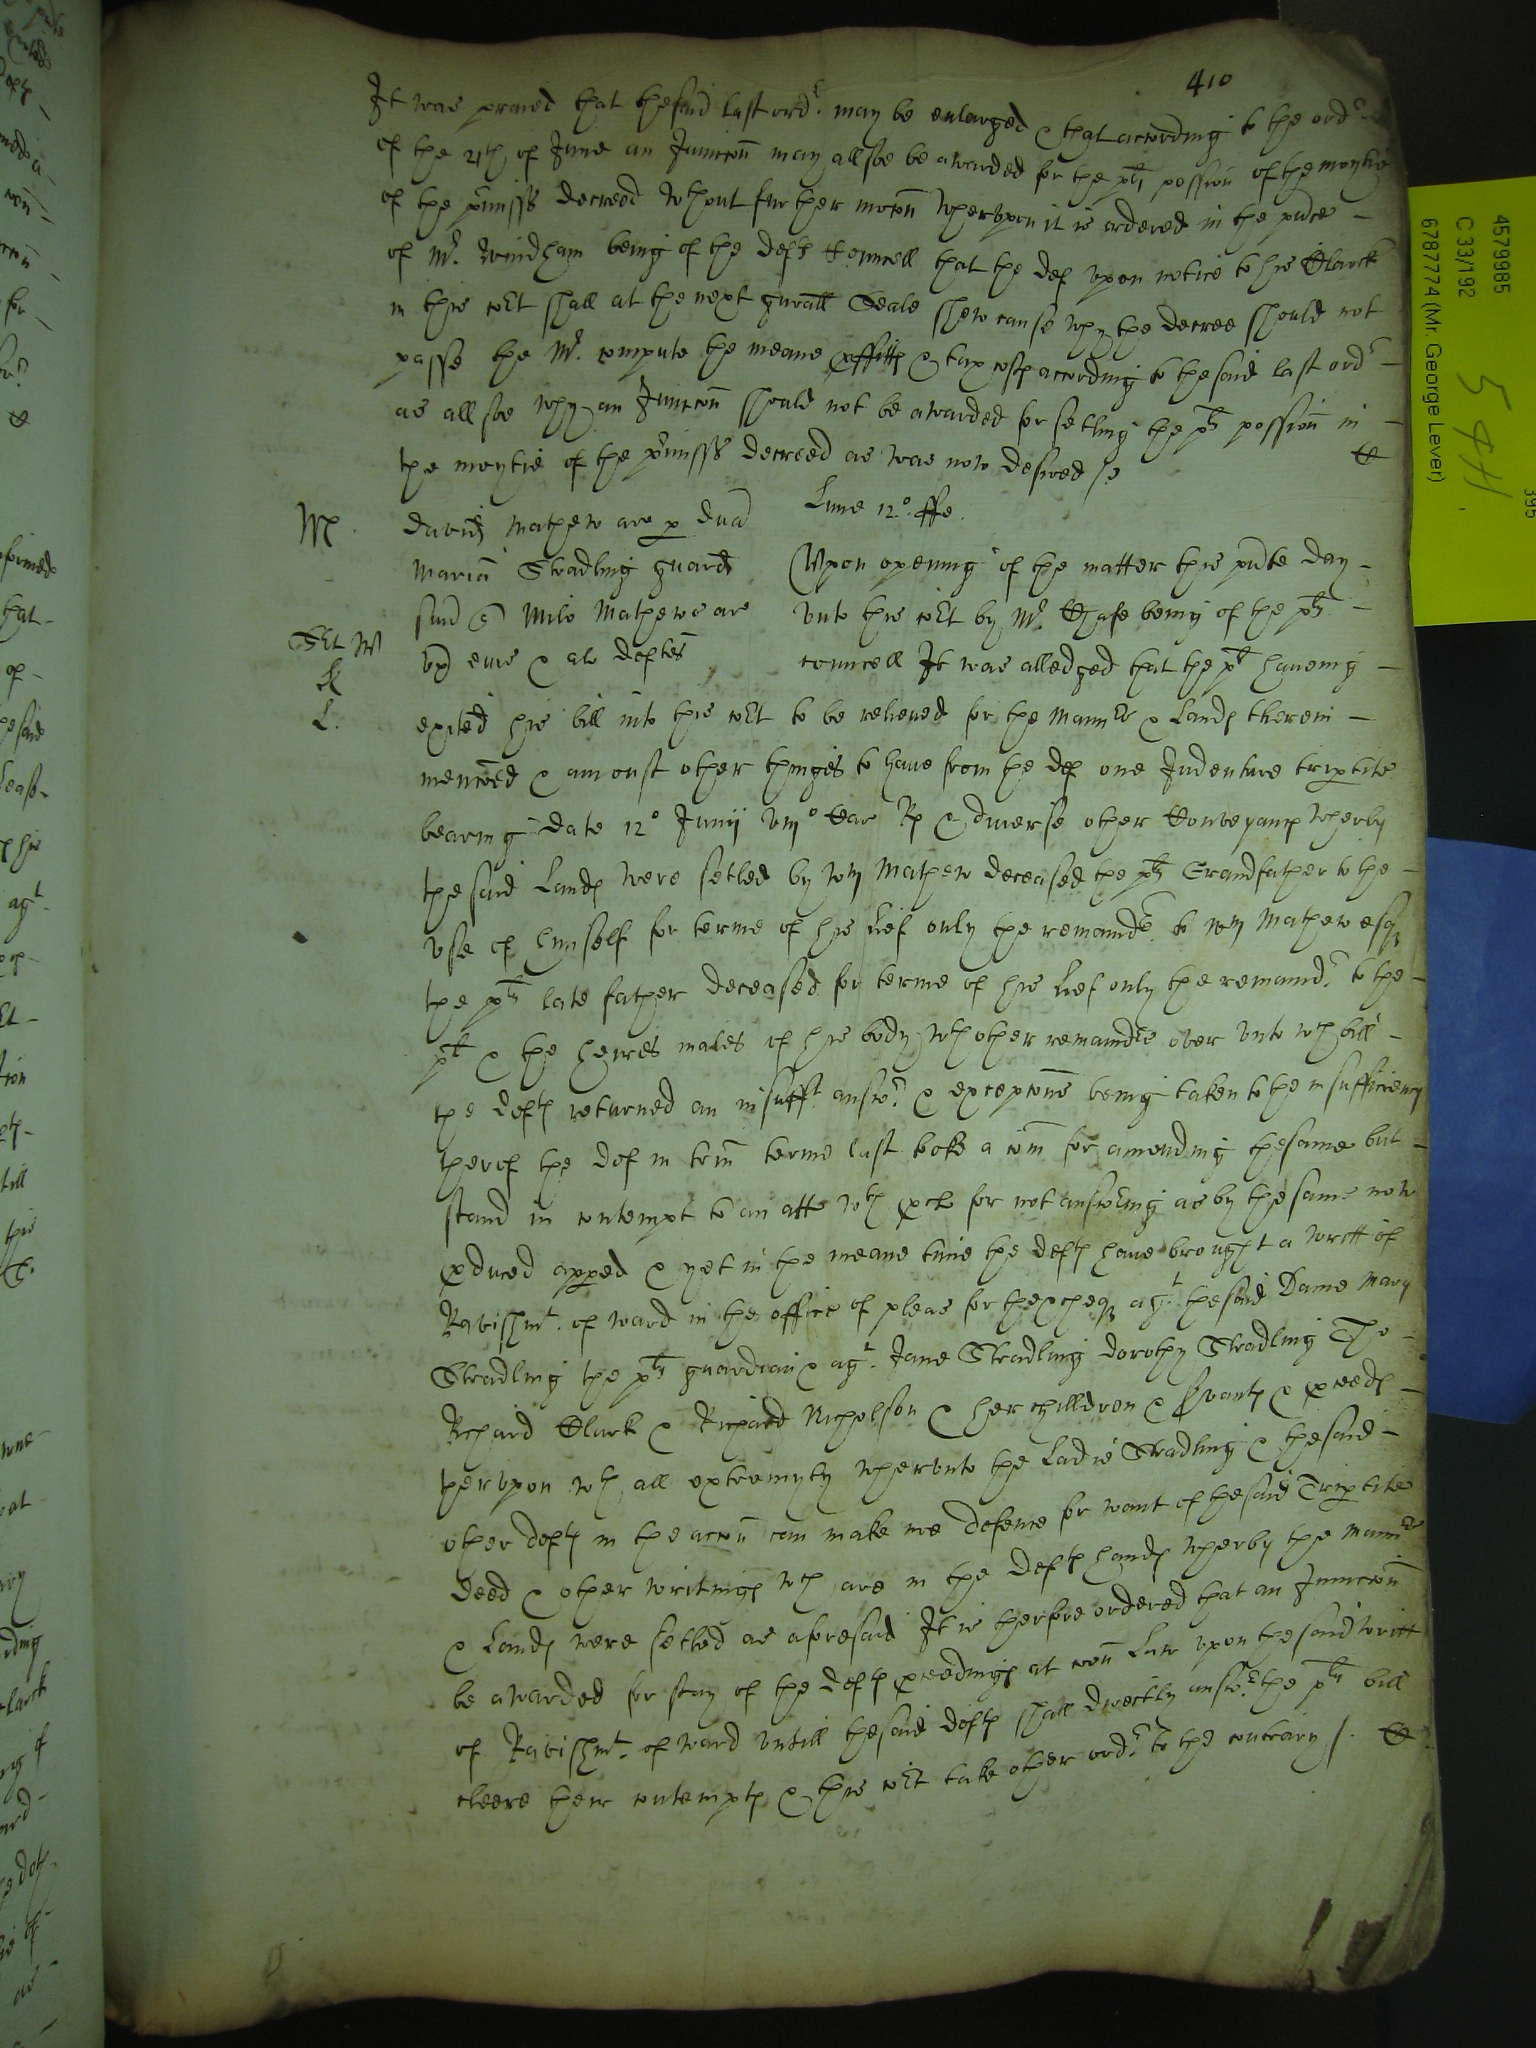 410
It was praied that the said last ordr. may be enlarged & that according to the ordr
of the 21th of June an Iniuncon may allsoe be awarded for the plts possion of the moytie
of the prmisss decreed wthout further mocon wherevpon it is ordered in the pnce
of Mr. Windham being of the defts Councell that the def vpon notice to his Clarck
in this cort shall at the next gnrall Seale shew cause why the decree should not
passe the Mr. compute the meane proffitts & tax costs according to the said last ordr
as allsoe why an Iniuncon should not be awarded for setling the plts possion in
the moytie of the prmisss decreed as was now desired /.
Lune 12o. ffe.
M.
David Mathew ar p dnam
Mariam Stradling guard
suam Milo Mathewe ar
vx eius & al deftes
Upon opening of the matter this pnte day
vnto this cort by Mr. Chafe being of the plts
councell It was alledged that the plt haveing
exited his bill into this cort to be releued for the Mannrs & Lands therein
mencoed & amonst other thinges to haue from the def one Indenture tripartite
bearing date 12o Junij viijo Car Rs & diuerse other Conveyancs wherby
the said Lands were setled by Wm Mathew deceased the plts Grandfather to the
vse of himself for terme of his lief only the remaindr. to Wm Mathew esqr
the plts late father deceased for terme of his Lief only the remaindr. to the
plt & the heires males of his body wth other remaindrs over vnto wch bill
the defts returned an insufft. answr. & excepcons being taken to the insufficiency
therof the def in trin terme last tooke a com for amending the same but
stand in contempt to an att wth procl for not answering as by the same now
produced apped & yet in the meane time the defts haue brought a writt of
Ravishmt. of ward in the office of pleas for thexcheqr agt. the said Dame Mary
Stradling the plts guardian & agt. Jane Stradling Dorothy Stradling Tho
Richard Clark & Richard Nicholson & her chilldren & srvants & proceeds
thervpon wth all extremyty whervnto the Ladie Stradling & the said
other defts in the accon can make noe defence for want of the said Tripartite
deed & other writings wch are in the defts hands wherby the Mannrs
& Lands were setled as aforesaid It is therfore ordered that an Iniuncon
be awarded for stay of the defts proceedings at comon Law vpon the said writt
of Ravishmt. of ward vntill the said defts shall directly answr. the plts bill
cleere their contempts & this cort take other ordr. to the contrary /.
4579985
C 33/192
6787774 (Mr. George Lever)
395